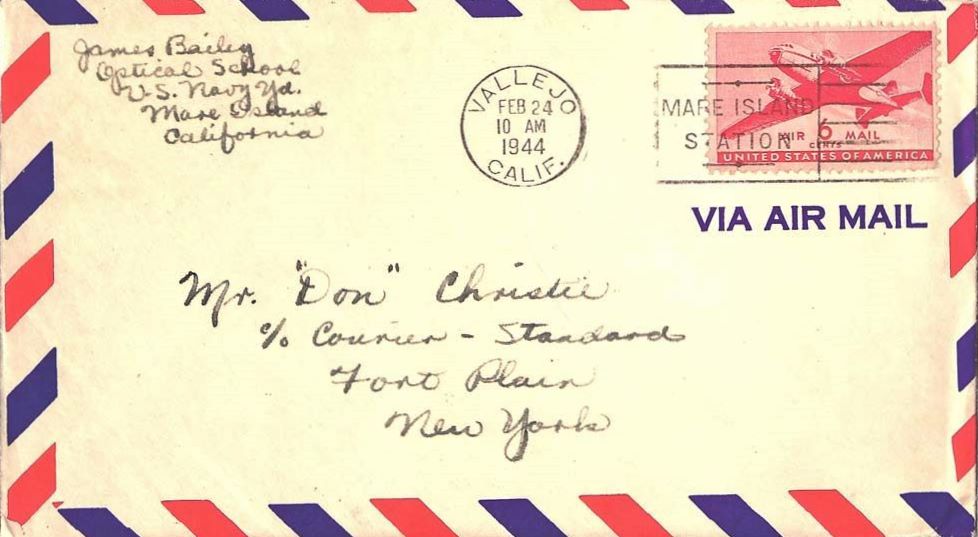 James Bailey
Optical School
U.S. Navy Yd.
Mare Island
California
VALLEJO
FEB 24
10 AM
1944
CALIF.
MARE ISLAND
STATION
AIR 6 MAIL
CENTS
UNITED STATES OF AMERICA
VIA AIR MAIL
Mr. "Don" Christie
c/o Courier - Standard
Fort Plain
New York